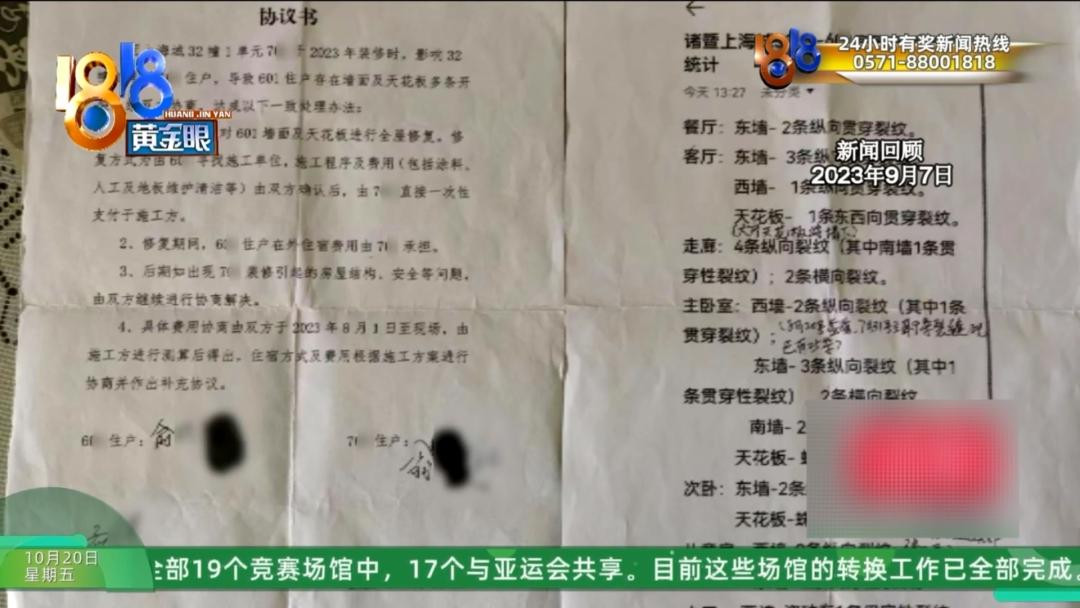 协议书
海城32幢1单元70 于2023年装修时，影响32
住户，导致601住户存在墙面及天花板多条开
协商，达成以下一致处理办法：
对601墙面及天花板进行全屋修复。修
复方式为由60 寻找施工单位，施工程序及费用（包括涂料、
人工及地板维护清洁等）由双方确认后，由70 直接一次性
支付于施工方。
2、修复期间，60 住户在外住宿费用由70 承担。
3、后期如出现70 装修引起的房屋结构、安全等问题，
由双方继续进行协商解决。
4、具体费用协商由双方于2023年8月1日至现场，由
施工方进行测算后得出，住宿方式及费用根据施工方案进行
协商并作出补充协议。
60 住户：俞
70 住户：
诸暨上海
统计
今天 13:27 未分类
餐厅：东墙-2条纵向贯穿裂纹。
客厅：东墙- 3条纵
西墙- 1条纵向贯穿裂纹。
天花板- 1条东西向贯穿裂纹。
走廊：4条纵向裂纹（其中南墙1条贯
穿性裂纹）；2条横向裂纹。
主卧室：西墙-2条纵向裂纹（其中1条
贯穿裂纹）；
东墙-3条纵向裂纹（其中1
条贯穿性裂纹） 2条横向裂纹
南墙-2
天花板-
次卧：东墙-2条
天花板-蛛
1818
HUANG JIN YAN
黄金眼
1818
24小时有奖新闻热线
0571-88001818
新闻回顾
2023年9月7日
10月20日
星期五
全部19个竞赛场馆中，17个与亚运会共享。目前这些场馆的转换工作已全部完成。